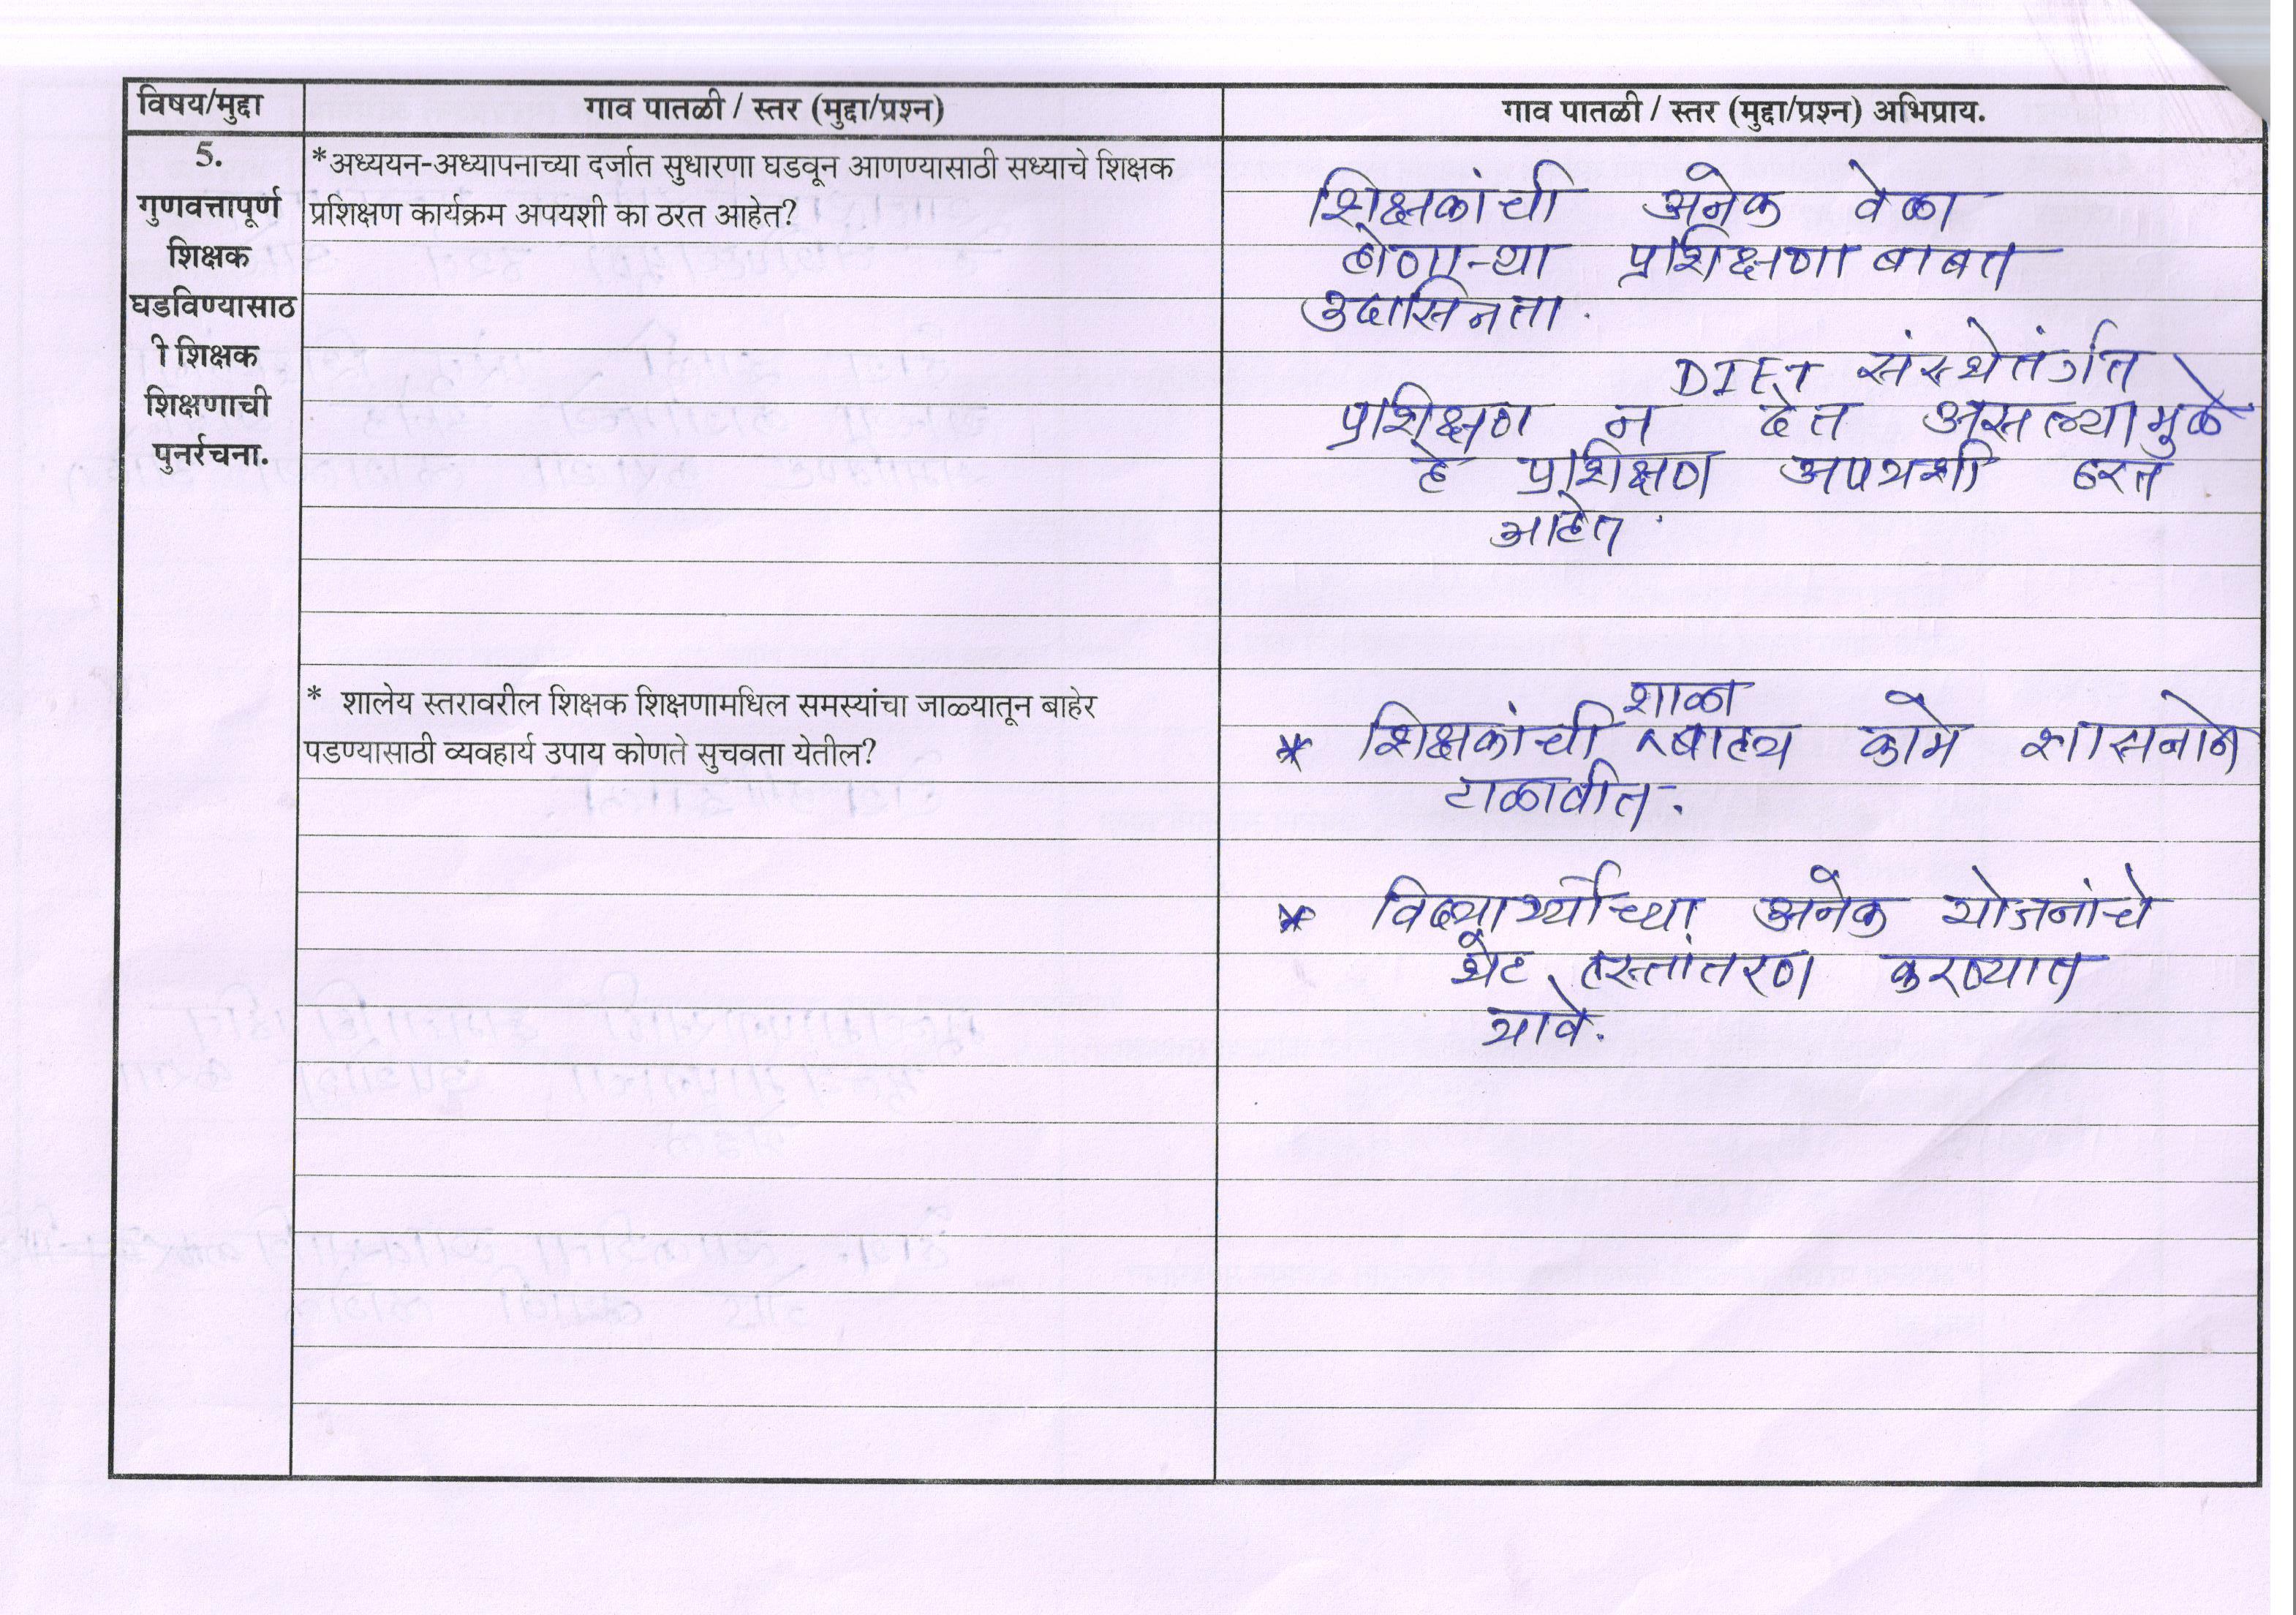 विषय/मुद्दा
गाव पातळी / स्तर (मुद्दा/प्रश्न)
गाव पातळी / स्तर (मुद्दा/प्रश्न) अभिप्राय.
5.
गुणवत्तापूर्ण
शिक्षक
घडविण्यासाठ
ी शिक्षक
शिक्षणाची
पुनर्रचना.
*अध्ययन-अध्यापनाच्या दर्जात सुधारणा घडवून आणण्यासाठी सध्याचे शिक्षक
प्रशिक्षण कार्यक्रम अपयशी का ठरत आहेत?
शिक्षकांची अनेक वेळा
होणाऱ्या प्रशिक्षणा बाबत
उदासिनता.
DIET संस्थेतंर्गत
प्रशिक्षण न देत असल्यामुळे
हे प्रशिक्षण अपयशी ठरत
आहेत.
* शालेय स्तरावरील शिक्षक शिक्षणामधिल समस्यांचा जाळ्यातून बाहेर
पडण्यासाठी व्यवहार्य उपाय कोणते सुचवता येतील?
* शिक्षकांची शाळा बाह्य कामे शासनाने
टाळावीत.
* विद्यार्थ्यांच्या अनेक योजनांचे
थेट हस्तांतरण करण्यात
यावे.